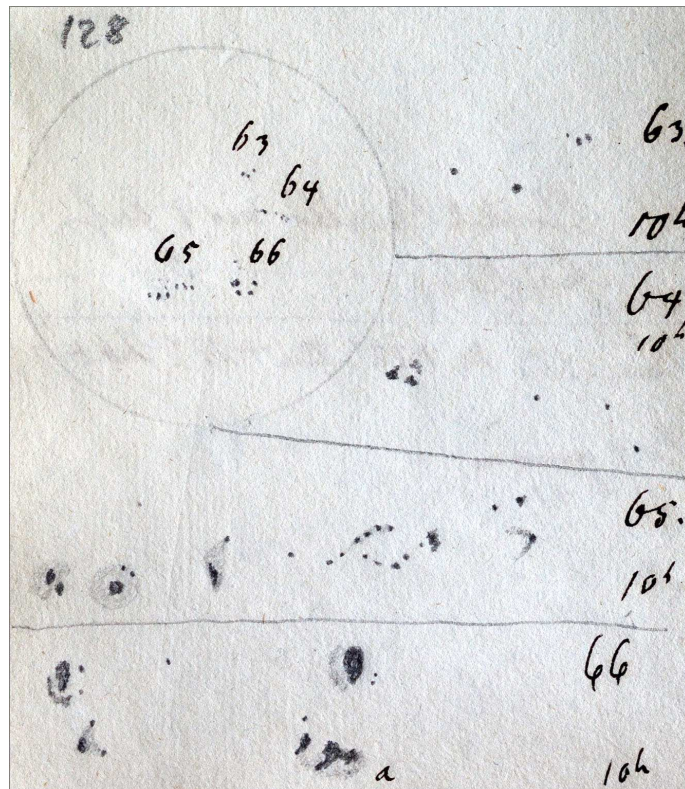 128
63
64
65 66
63.
10h
64
10h
65.
10h
66
a 10h